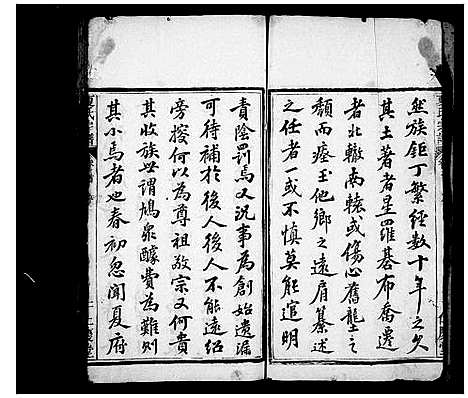 然族鉅丁繁經數十年之久
其土著者星羅碁布喬遷
者北轍南轅或傷心舊壟之
頹而瘞玉他鄉之遠肩纂述
之任者一或不慎莫能逭明
責陰罰焉又況事為創始遺漏
可待補於後人後人不能遠紹
旁搜何以為尊祖敬宗又何貴
其收族世謂鳩貲醵費為難則
其小焉者也春初忽聞夏府